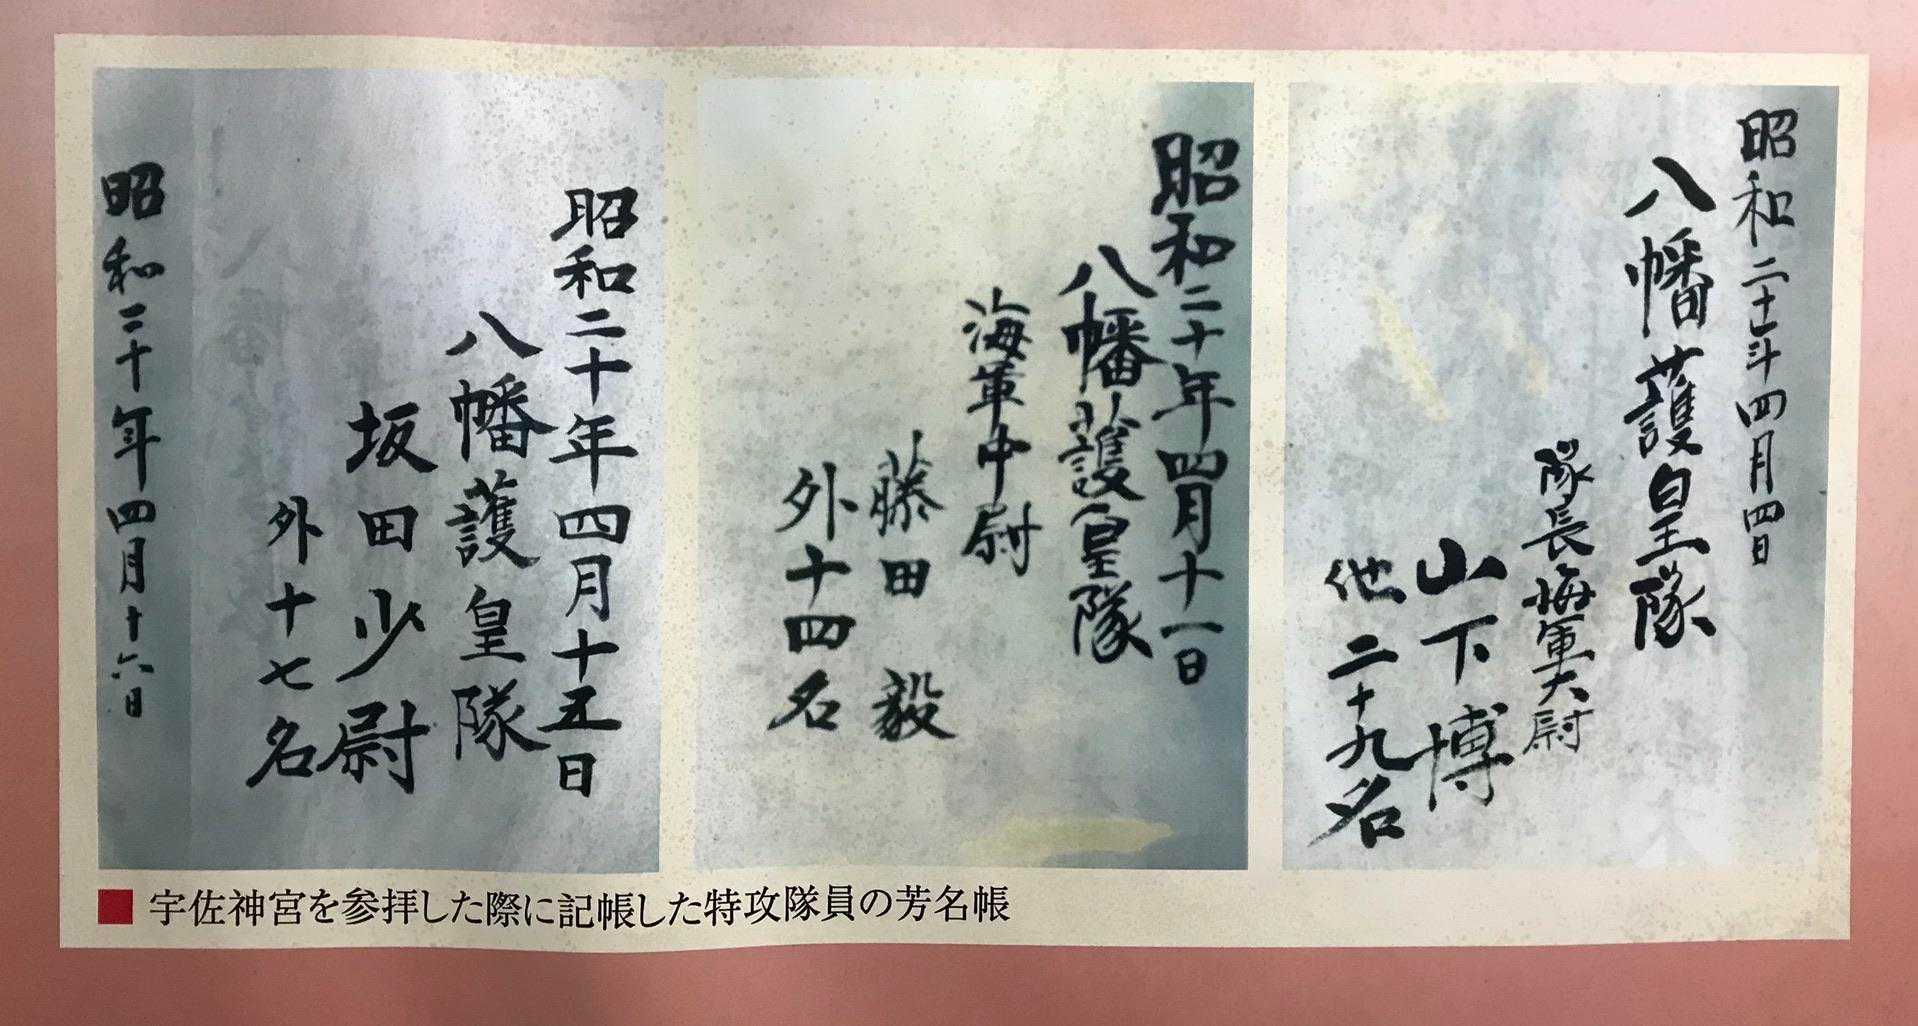 昭和二十年四月四日
八幡護皇隊
隊長海軍大尉
山下博
他二十九名
昭和二十年四月十一日
八幡護皇隊
海軍中尉
藤田 毅
外十四名
昭和二十年四月十五日
八幡護皇隊
坂田少尉
外十七名
昭和二十年四月十六日
■ 宇佐神宮を参拝した際に記帳した特攻隊員の芳名帳